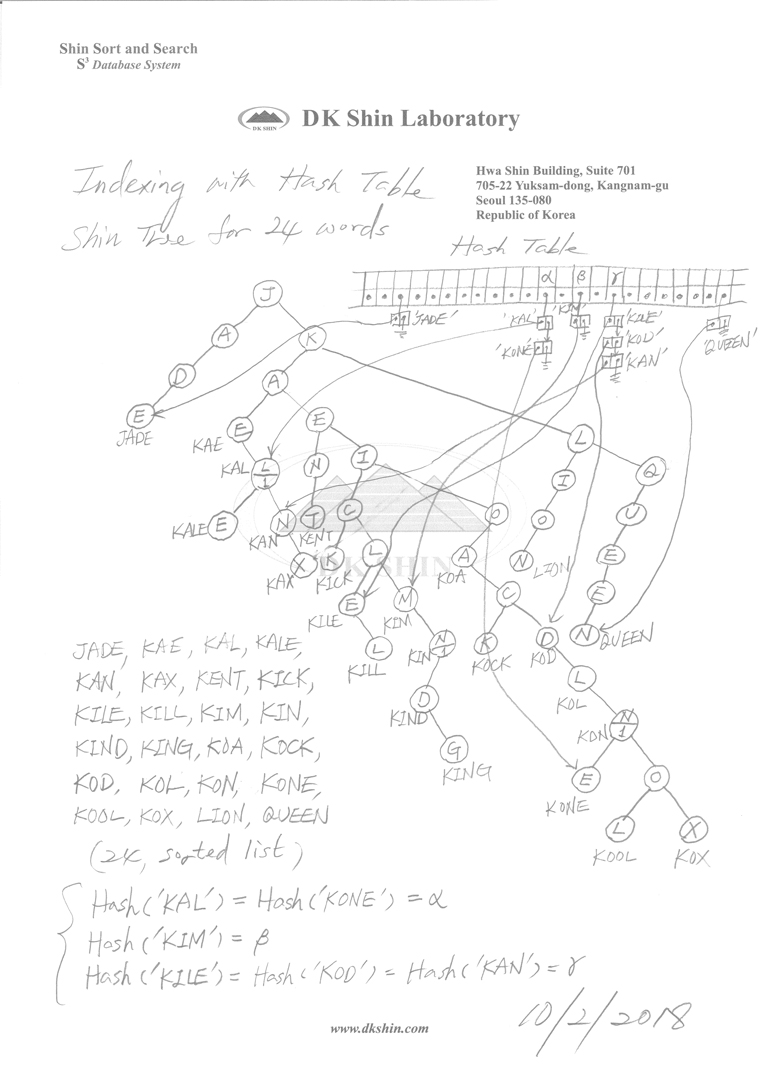 Shin Sort and Search
S³ Database System
DK SHIN
DK Shin Laboratory
Hwa Shin Building, Suite 701
705-22 Yuksam-dong, Kangnam-gu
Seoul 135-080
Republic of Korea
Indexing with Hash Table
Shin Tree for 24 words
Hash Table
α β γ
'JADE' 'KAL' 'KIM' 'KILE' 'QUEEN'
'KONE' 'KOD'
'KAN'
J
A K
D A
E E E L
JADE KAE
KAL L 1 N I I Q
KALE E N T C O O U
KAN KENT
X K L A N E
KAX KICK KOA LION
DK SHIN
E M C E
KILE KIM
L N 1 K D N QUEEN
KILL KIN KOCK KOD
D L
KIND KOL
G N 1
KING KON
E O
KONE
L X
KOOL KOX
JADE, KAE, KAL, KALE,
KAN, KAX, KENT, KICK,
KILE, KILL, KIM, KIN,
KIND, KING, KOA, KOCK,
KOD, KOL, KON, KONE,
KOOL, KOX, LION, QUEEN
(24, sorted list)
Hash('KAL') = Hash('KONE') = α
Hash('KIM') = β
Hash('KILE') = Hash('KOD') = Hash('KAN') = γ
10/2/2018
www.dkshin.com